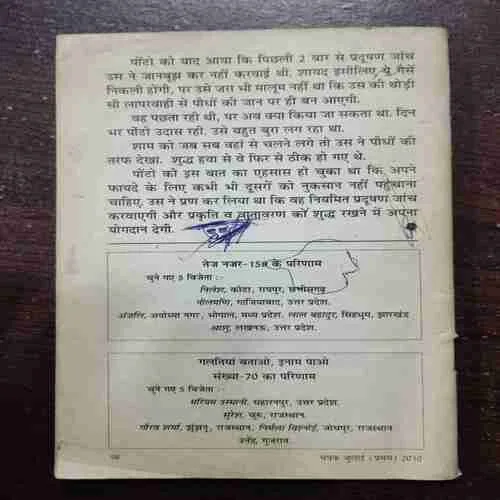 पोंटो को याद आया कि पिछली 2 बार से प्रदूषण जांच
उस ने जानबूझ कर नहीं करवाई थी. शायद इसीलिए ये गैसें
निकली होंगी, पर उसे जरा भी मालूम नहीं था कि उस की थोड़ी
सी लापरवाही से पौधों की जान पर ही बन आएगी.
वह पछता रही थी, पर अब क्या किया जा सकता था. दिन
भर पोंटो उदास रही. उसे बहुत बुरा लग रहा था.
शाम को जब सब वहां से चलने लगे तो उस ने पौधों की
तरफ देखा. शुद्ध हवा से वे फिर से ठीक हो गए थे.
पोंटो को इस बात का एहसास हो चुका था कि अपने
फायदे के लिए कभी भी दूसरों को नुकसान नहीं पहुंचाना
चाहिए. उस ने प्रण कर लिया था कि वह नियमित प्रदूषण जांच
करवाएगी और प्रकृति व वातावरण को शुद्ध रखने में अपना
योगदान देगी.
तेज नजर-158 के परिणाम
चुने गए 5 विजेता :-
नितेश, कोंटा, रायपुर, छत्तीसगढ़
नीलमणि, गाजियाबाद, उत्तर प्रदेश.
अंजलि, अयोध्या नगर, भोपाल, मध्य प्रदेश. लाल बहादुर, सिंहभूम, झारखंड
आयु, लखनऊ, उत्तर प्रदेश.
गलतियां बताओ, इनाम पाओ
संख्या-70 का परिणाम
चुने गए 5 विजेता :-
मरियम उस्मानी, सहारनपुर, उत्तर प्रदेश.
सुरेश, चुरू, राजस्थान.
गौरव शर्मा, झुंझनू, राजस्थान. निर्मला बिश्नोई, जोधपुर, राजस्थान
उनेह, गुजरात.
चंपक जुलाई (प्रथम) 2010